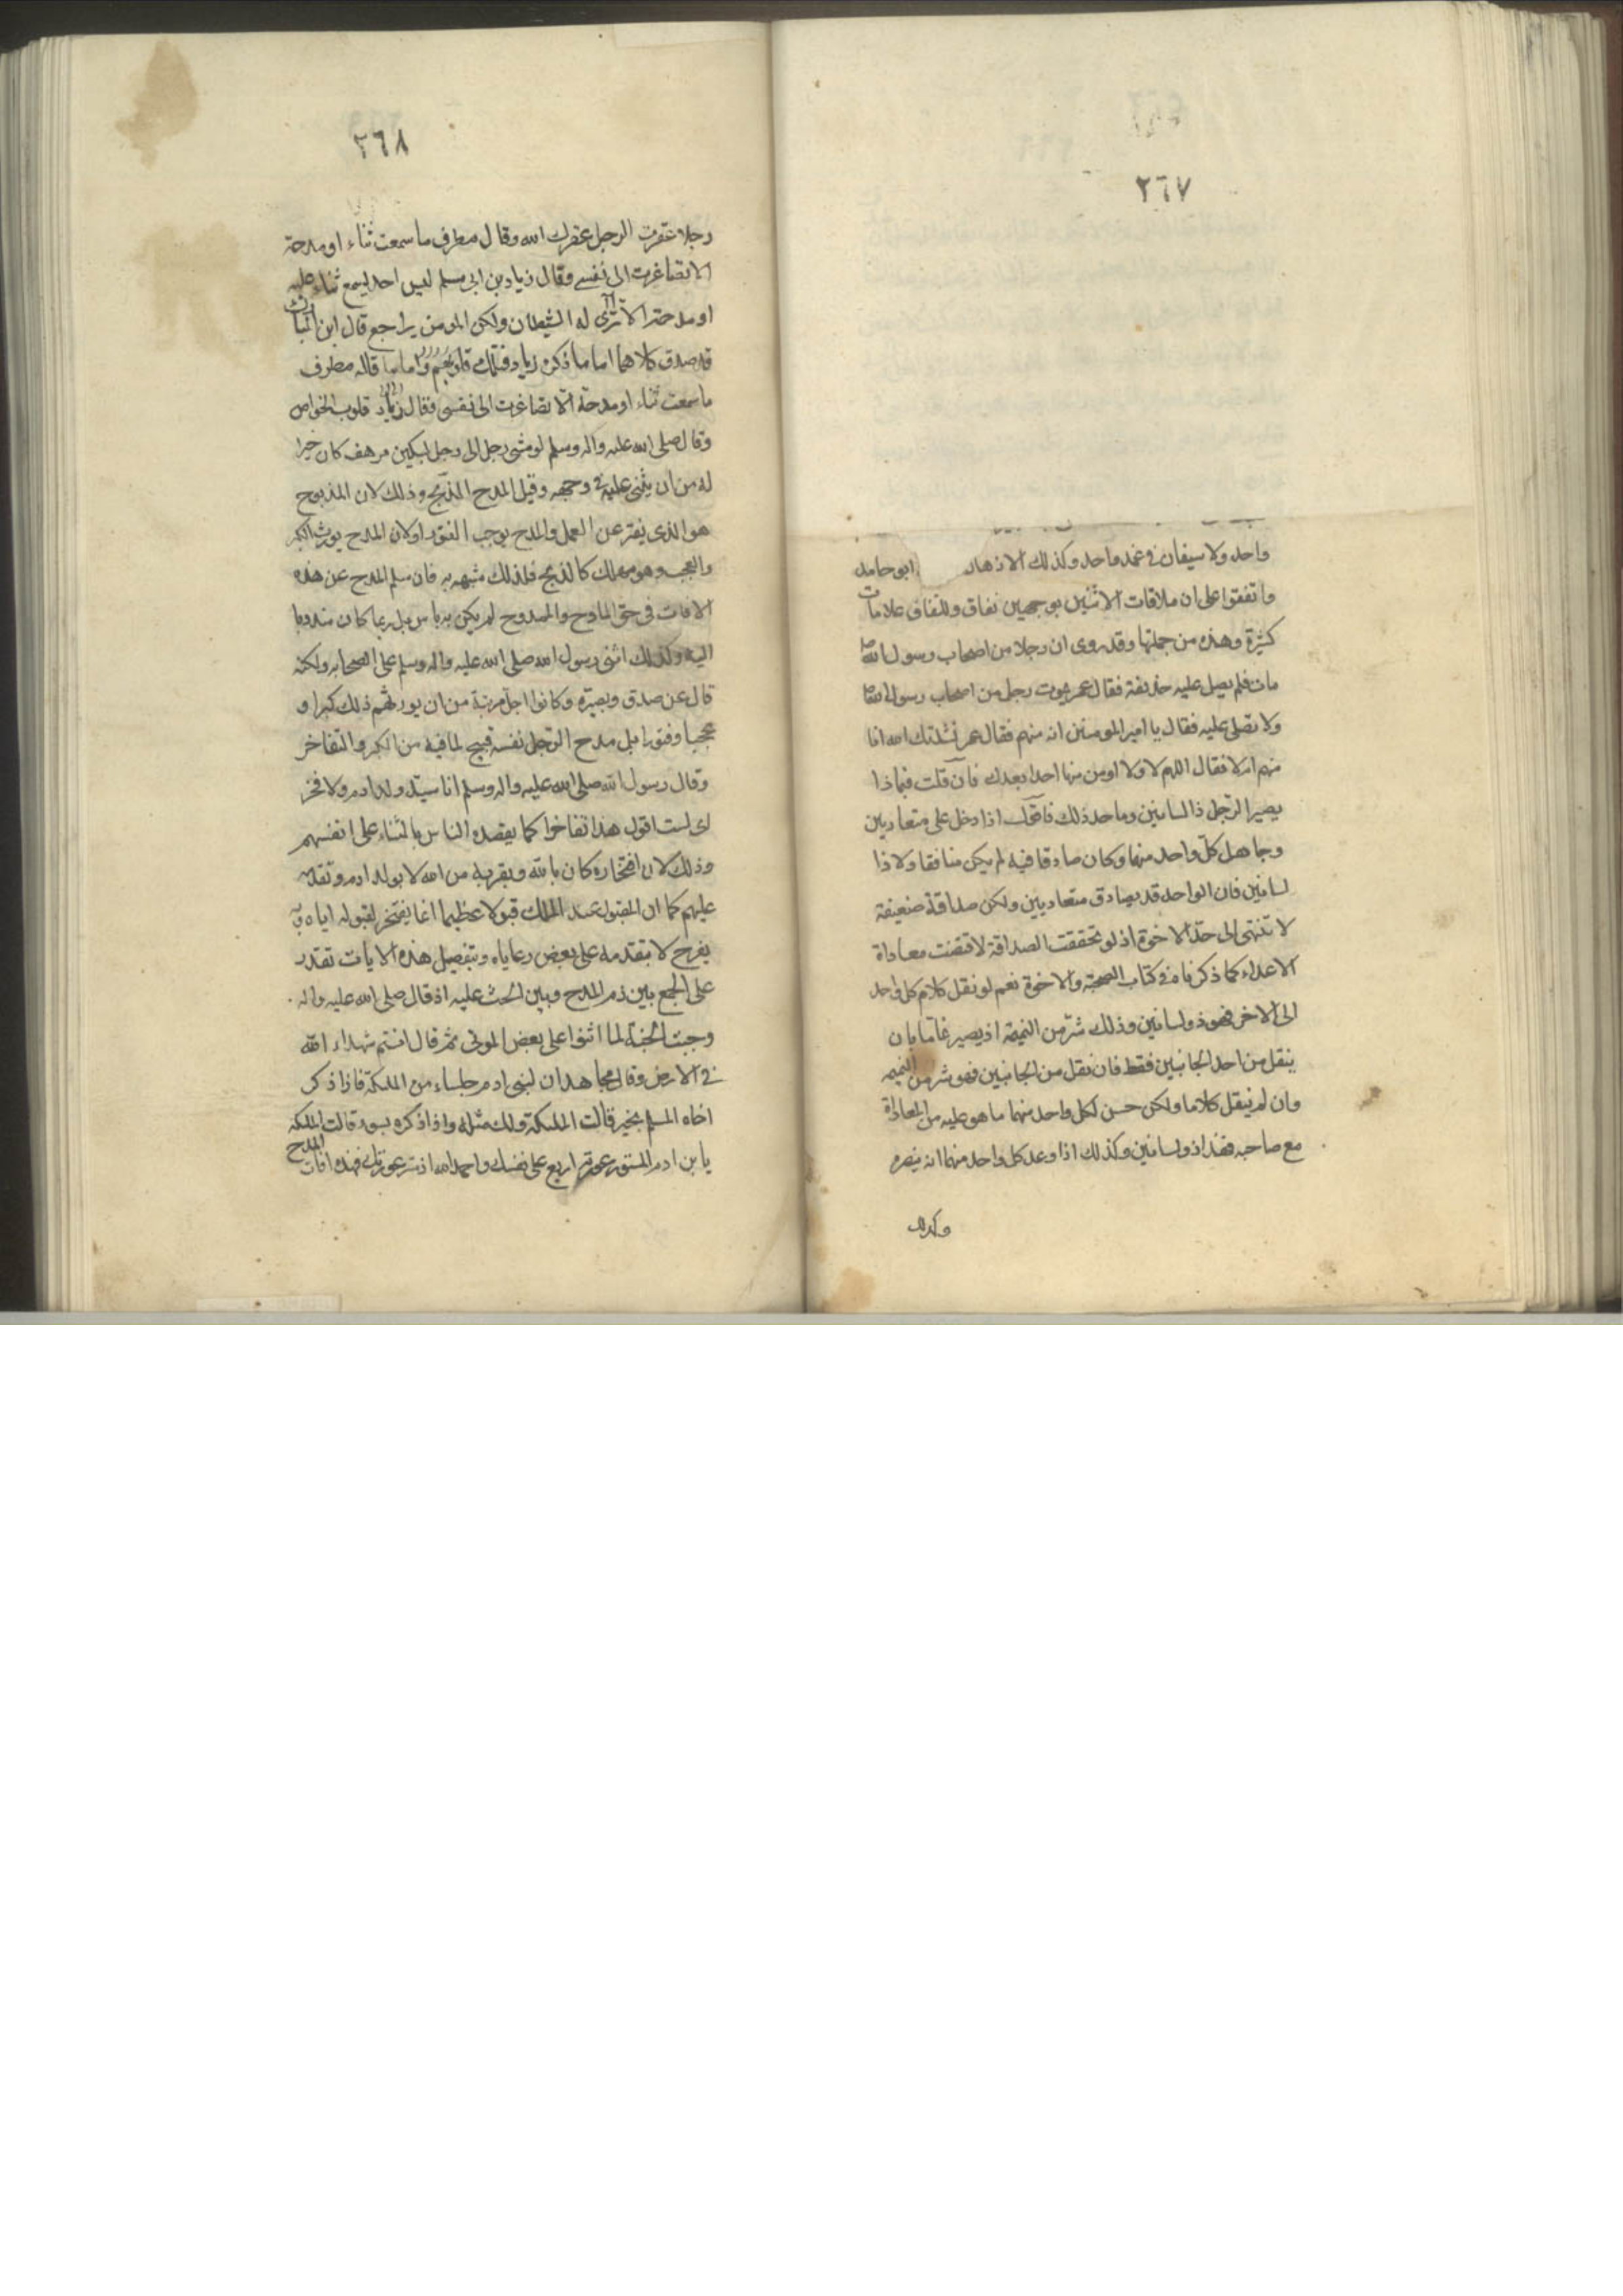 ٢٦٧
واحد ولا سيفان في غمد واحد وكذلك الاذهان ابو حامد
واتفقوا على ان ملاقات الاثنين بوجهين نفاق وللنفاق علامات
كثيرة وهذه من جملتها وقد روى ان رجلا من اصحاب رسول الله
مات فلم يصل عليه حذيفة فقال عمر يموت رجل من اصحاب رسول الله
ولا تصلى عليه فقال يا امير المومنين انه منهم فقال عمر نشدتك الله انا
منهم ام لا فقال اللهم لا ولا اومن منها احدا بعدك فان قلت فبماذا
يصير الرّجل ذا لسانين وما حد ذلك فاقول اذا دخل على متعاديين
وجامل كلّ واحد منهما وكان صادقا فيه لم يكن منافقا ولا ذا
لسانين فان الواحد قد يصادق متعاديين ولكن صداقة ضعيفة
لا تنتهى الى حدّ الاخوة اذ لو تحققت الصداقة لاقتضت معاداة
الاعداء كما ذكرناه في كتاب الصحبة والاخوة نعم لو نقل كلام كل واحد
الى الاخر فهو ذو لسانين وذلك شرّ من النميمة اذ يصير نماما بان
ينقل من احد الجانبين فقط فان نقل من الجانبين فهو شر من النميمه
وان لم ينقل كلاما ولكن حسن لكل واحد منهما ما هو عليه من المعاداة
مع صاحبه فهذا ذو لسانين وكذلك اذا وعد كل واحد منهما انه ينصره
وكذلك
٢٦٨
رجلا عقرت الرجل عقرك الله وقال مطرف ما سمعت ثناء او مدحة
الا تصاغرت الى نفسے وقال زياد بن ابى مسلم ليس احد يسمع ثناء عليه
او مدحة الا ترّى له الشيطان ولكن المومن يراجع قال ابن المبارك
قد صدق كلاهما اما ما ذكره زياد فتلك قلوب واما ما قاله مطرف
ما سمعت ثناء او مدحة الا تصاغرت الى نفسى فقال زياد قلوب الخواص
وقال صلى الله عليه واله وسلم لو مشى رجل الى رجل بسكين مرهف كان خيرا
له من ان يثنى عليه في وجهه وقيل المدح الذبح وذلك لان المذبوح
هو الذى يفتر عن العمل والمدح يوجب الفتور او لان المدح يورث الكبر
والعجب وهو مهلك كالذبح فلذلك شبهه به فان سلم المدح عن هذه
الافات فى حق المادح والممدوح لم يكن به باس بل ربما كان مندوبا
اليه وكذلك اثنى رسول الله صلى الله عليه واله وسلم على الصحابه ولكنه
قال عن صدق وبصيرة وكانوا اجل مرتبة من ان يورثهم ذلك كبرا و
عجبا وفتورا بل مدح الرّجل نفسه قبيح لما فيه من الكبر والتفاخر
وقال رسول الله صلى الله عليه واله وسلم انا سيّد ولد ادم ولا فخر
اى لست اقول هذا تفاخرا كما يقصده الناس بالثناء على انفسهم
وذلك لان افتخاره كان بالله وبقربه من الله لا بولد ادم وتقدمه
عليهم كما ان المقبول عند الملك قبولا عظيما انما يفتخر لقبوله اياه وبه
يفرح لا بتقدمه على بعض رعاياه وبتفصيل هذه الايات تقدر
على الجمع بين ذم المدح وبين الحث عليه اذ قال صلى الله عليه واله
وجبت الجنة لما اثنوا على بعض الموتى ثم قال انتم شهداء الله
في الارض وقال مجاهد ان لبنى ادم جلساء من الملئكة فاذا ذكر
اخاه المسلم بخير قالت الملئكة ولك مثله واذا ذكره بسوء قالت الملئكه
يا بن ادم المستور عورته اربع على نفسك واحمد الله اذ ستر عورتك فهذه افات المدح